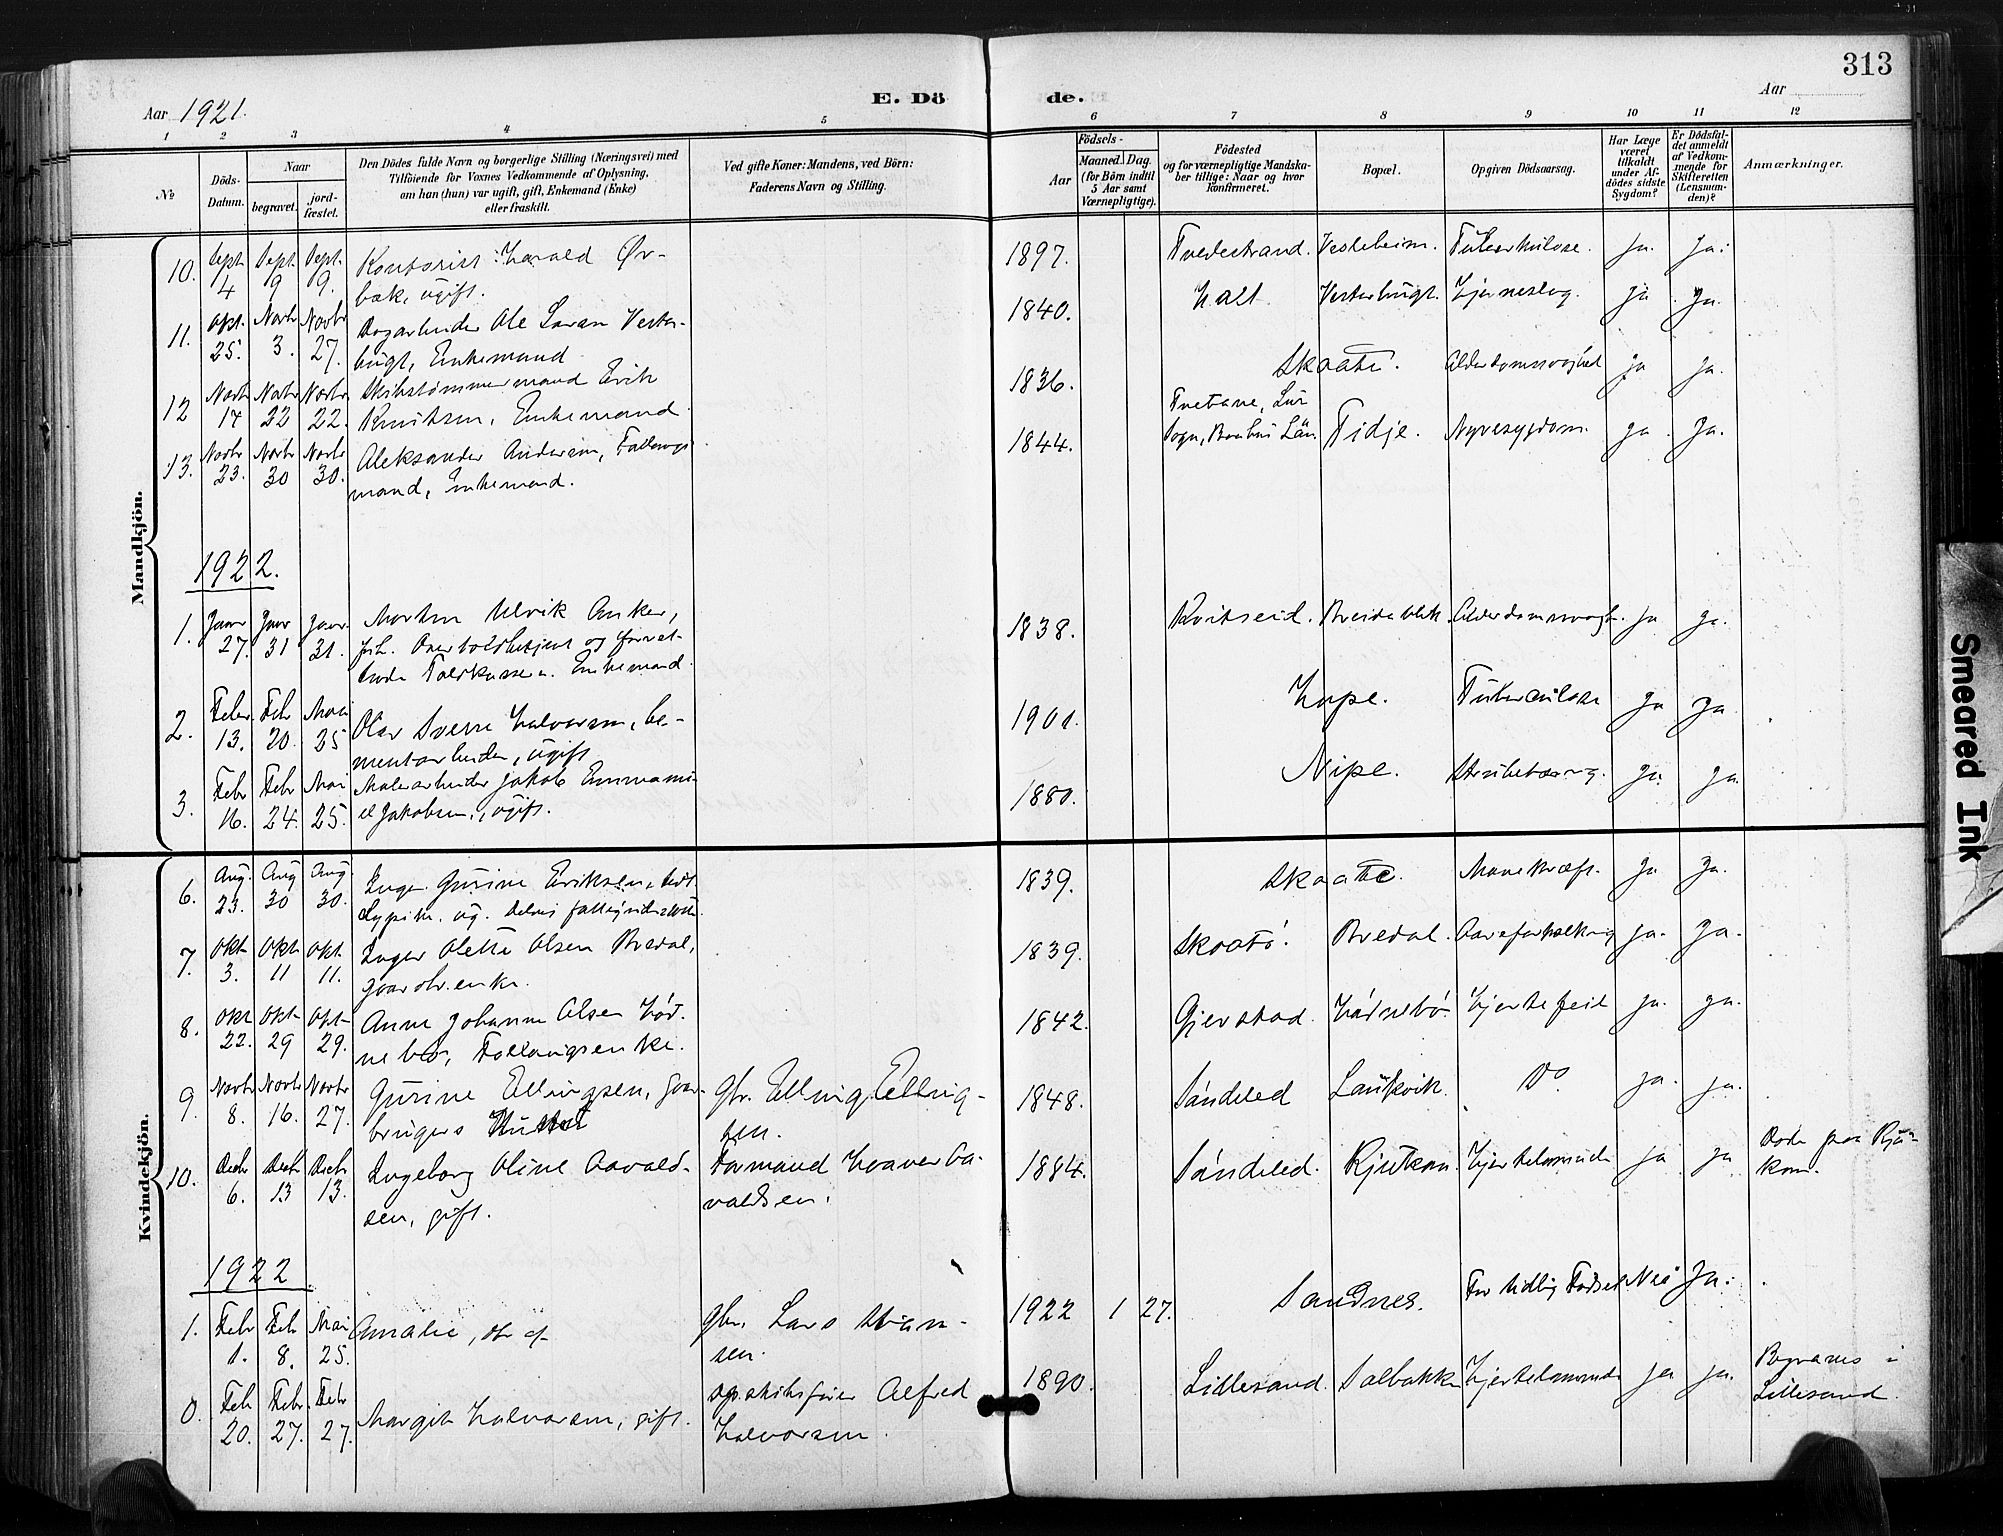 313
Aar 1921.
E. Dö de.
Aar
1 2 3 4 5 6 7 8 9 10 11 12
№
Döds-Datum.
Naar
begravet.
jord-fæstet.
Den Dödes fulde Navn og borgerlige Stilling (Næringsvei) med
Tilföiende for Voxnes Vedkommende af Oplysning,
om han (hun) var ugift, gift, Enkemand (Enke)
eller fraskilt.
Ved gifte Koner: Mandens, ved Börn:
Faderens Navn og Stilling.
Födsels-
Aar
Maaned. Dag.
(for Börn indtil
5 Aar samt
Værnepligtige).
Födested
og for værnepligtige Mandska-
ber tillige: Naar og hvor
konfirmeret.
Bopæl.
Opgiven Dödsaarsag.
Har Læge
været
tilkaldt
under Af-
dödes sidste
Sygdom?
Er Dödsfal-
det anmeldt
af Vedkom-
mende for
Skifteretten
(Lensman-
den)?
Anmærkninger.
Mandkjön.
10. Sept. 4 Sept. 9 Sept. 9. Kontorist Harald Ør-
bæk, ugift. 1897. Tvedestrand. Vesleheim. Tuberkulose. Ja. Ja.
11. Okt. 25. Novbr 3. Novbr 27. Ole Larsen Vester-
bugt, Enkemand 1840. Holt. Vesterbugt. Hjerneslag. Ja Ja.
12 Novbr 14 Novbr 22 Novbr 22. Skibstømmermand Erik
Knutsen, Enkemand. 1836. Skaatö. Alderdomssvaghed Ja Ja.
13. Novbr 23. Novbr 30 Novbr 30. Aleksander Andersen, Fattigs
mand, Enkemand. 1844. Tvetane, Lur
Sogn, Bohus Län. Tidje. Nyresygdom. Ja. Ja.
1922.
1. Janr 27. Janr 31 Janr. 31. Morten Ulrik Anker,
forh. Overtoldbetjent og forret-
tende Toldkasserer. Enkemand. 1838. Kvitseid. Breidablik. Alderdomssvagh. Ja Ja.
2. Febr 13. Feb 20. Mai 25 Olav Sverre Halvorsen, se-
mentarbeider, ugift 1901. Hope. Tuberculose Ja Ja.
3. Febr 16. Febr 24. Mai 25. Malerarbeider Jakob Emmanu-
el Jakobsen, ugift. 1880. Nipe. Strubetæring. Ja. Ja.
Kvindekjön.
6. Aug. 23. Aug 30 Aug 30. Inger Gurine Eriksen, 1839. Skaatö. Mavekræft. Ja Ja.
7. Okt 3. Okt 11 Okt 11. Inger Olette Olsen Bredal,
gaardbr. enke. 1839. Skaatö. Bredal. Aareforkalkning Ja. Ja.
8. Okt 22. Okt 29 Okt 29. Anne Johanne Olsen Hød-
nebø, Fattigsenke. 1842. Gjerstad. Hødnebø. Hjertefeil Ja. Ja.
9. Novbr 8. Novbr 16. Novbr 27. Gurine Ellingsen, gaar-
brugers Hustru Gbr. Elling Elling-
sen. 1848. Söndeled Laukvik. Do. Ja. Ja.
10. Decbr 6. Decbr 13 Decbr 13. Ingeborg Oline Aavald-
sen, gift. Formand Haaver Aa-
valdsen. 1884. Söndeled. Rjukan. Hjertelammelse Ja Ja Døde paa Rju-
kan.
1922.
1. Febr 1. Febr 8. Mai 25. Amalie, dtr af Gbr. Lars Han-
sen. 1922 1 27. Sandnes. For tidlig Födsel Nei Ja.
0. Feb 20. Febr. 27. Febr 27. Margit Halvorsen, gift. Alfred
Halvorsen. 1890. Lillesand. Solbakken Hjertelammelse Ja Ja. Begraves i
Lillesand.
Smeared Ink